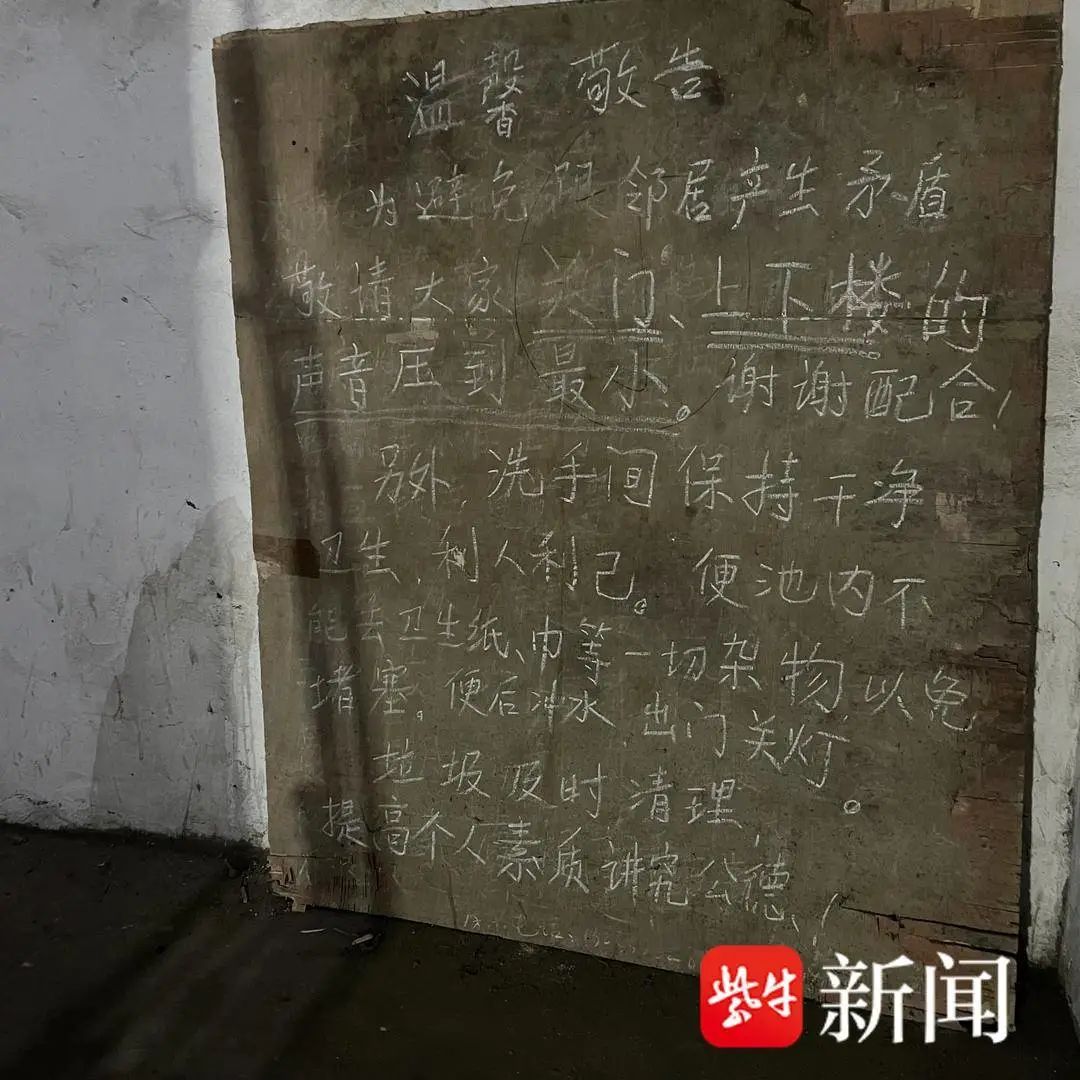 温馨敬告
为避免跟邻居产生矛盾
敬请大家关门、上下楼的
声音压到最小。谢谢配合!
另外,洗手间保持干净
卫生,利人利己。便池内不
能丢卫生纸、巾等一切杂物,以免
堵塞。便后冲水,出门关灯。
垃圾及时清理,
提高个人素质,讲究公德!
紫牛新闻